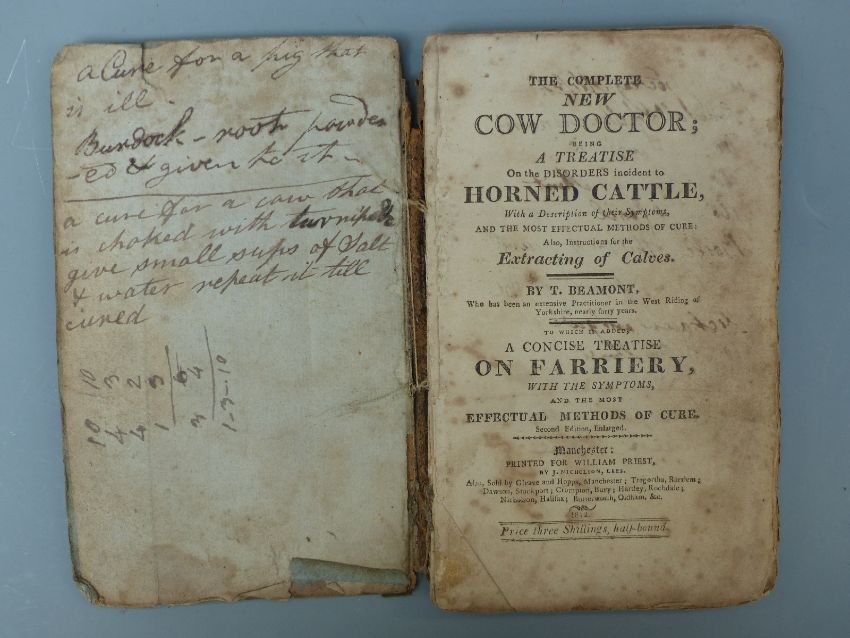 a Cure for a pig that
is ill -
Burdock - root powder
-ed & given to it -
a cure for a cow that
is choked with
give small sups of Salt
& water repeat it till
cured
THE COMPLETE
NEW
COW DOCTOR;
BEING
A TREATISE
On the DISORDERS incident to
HORNED CATTLE,
With a Description of their Symptoms,
AND THE MOST EFFECTUAL METHODS OF CURE:
Also, Instructions for the
Extracting of Calves.
BY T. BEAMONT,
Who has been an extensive Practitioner in the West Riding of
Yorkshire, nearly forty years.
TO WHICH IS ADDED,
A CONCISE TREATISE
ON FARRIERY,
WITH THE SYMPTOMS,
AND THE MOST
EFFECTUAL METHODS OF CURE.
Second Edition, Enlarged.
Manchester:
PRINTED FOR WILLIAM PRIEST,
BY J. NICHOLSON, LEES.
Also, Sold by Gleave and Hopps, Manchester;
Dawson, Stockport; Crompton, Bury; Hartley, Rochdale;
Nicholson, Halifax; Butterworth, Oldham, &c.
Price three Shillings, half-bound.